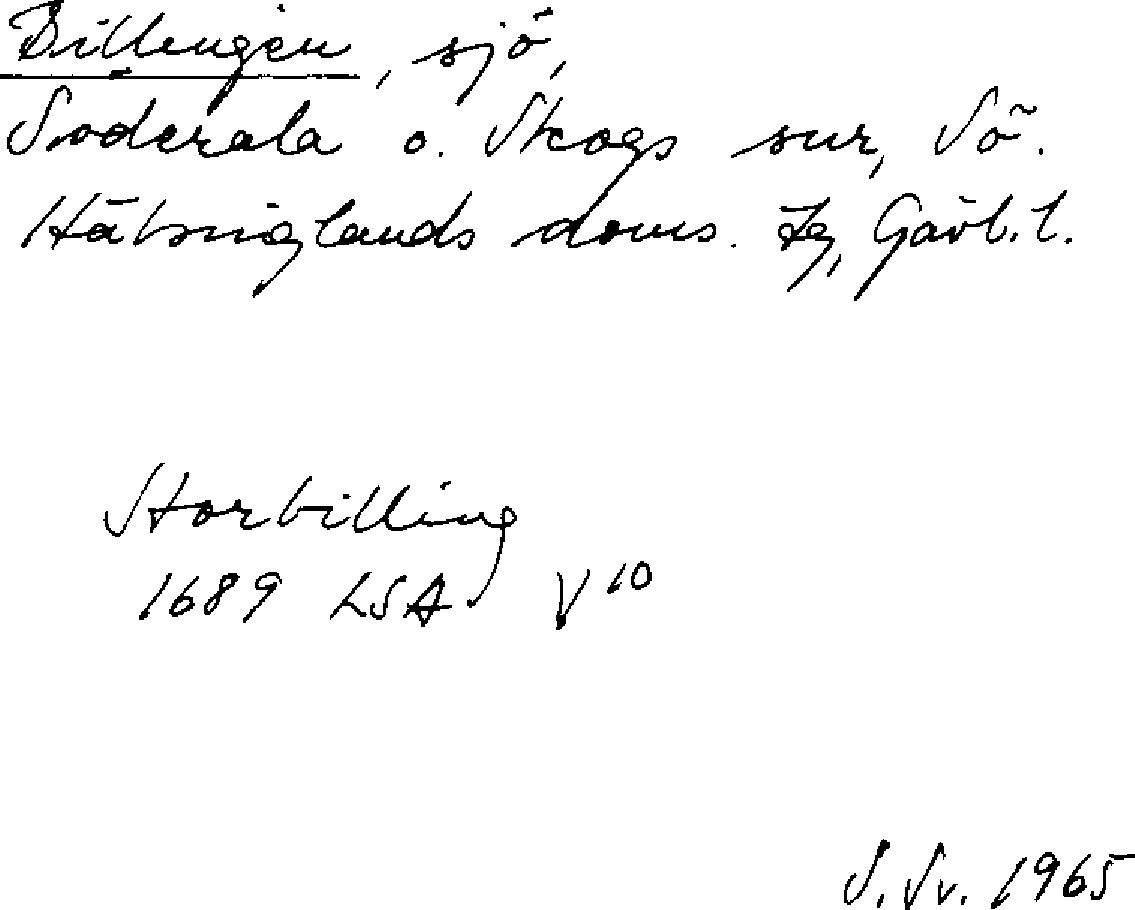 Billingen, sjö,
Söderala o. Skogs snr, Sö.
Hälsinglands doms. tg, Gävl. l.
Storbilling
1689 LSA V 10
S. Sv. 1965